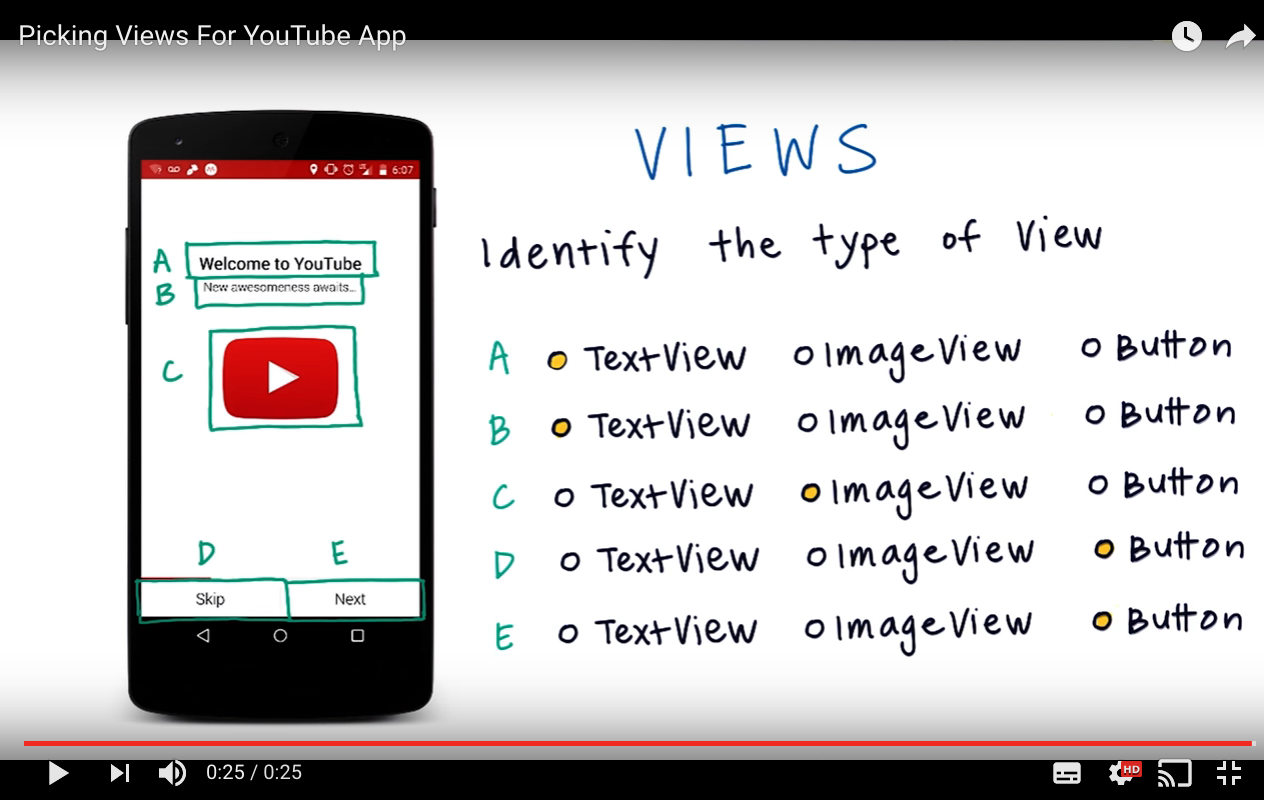 Picking Views For YouTube App
6:07
A Welcome to YouTube
B New awesomeness awaits...
C
D E
Skip Next
VIEWS
Identify the type of View
A TextView ImageView Button
B TextView ImageView Button
C TextView ImageView Button
D TextView ImageView Button
E TextView ImageView Button
0:25 / 0:25
HD